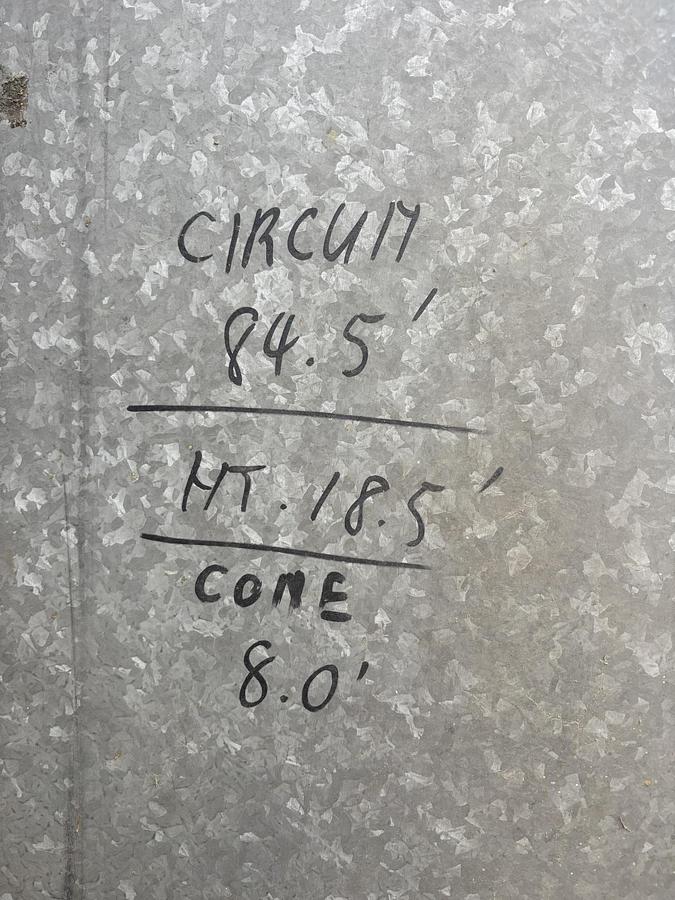 CIRCUM
84.5'
HT. 18.5'
CONE
8.0'